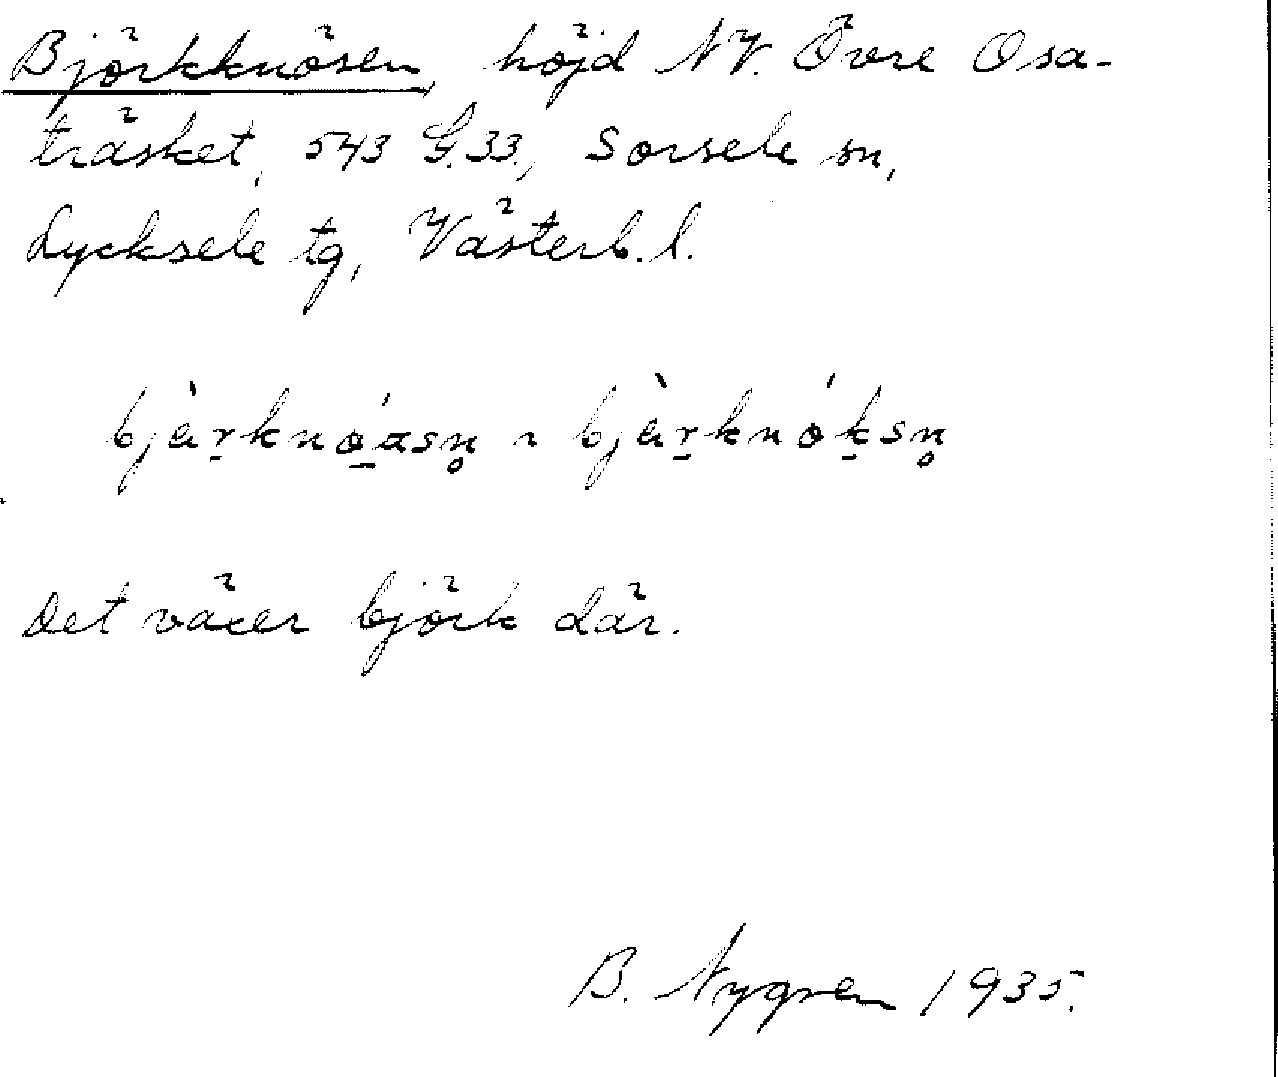 Björkknösen, höjd NV. Övre Osa-
träsket, 543 G.33., Sorsele sn,
Lycksele tg, Västerb. l.
bjàr̠knó̠asn̥ ~ bjàr̠knók̠sn̥
Det växer björk där.
B. Nygren 1935.